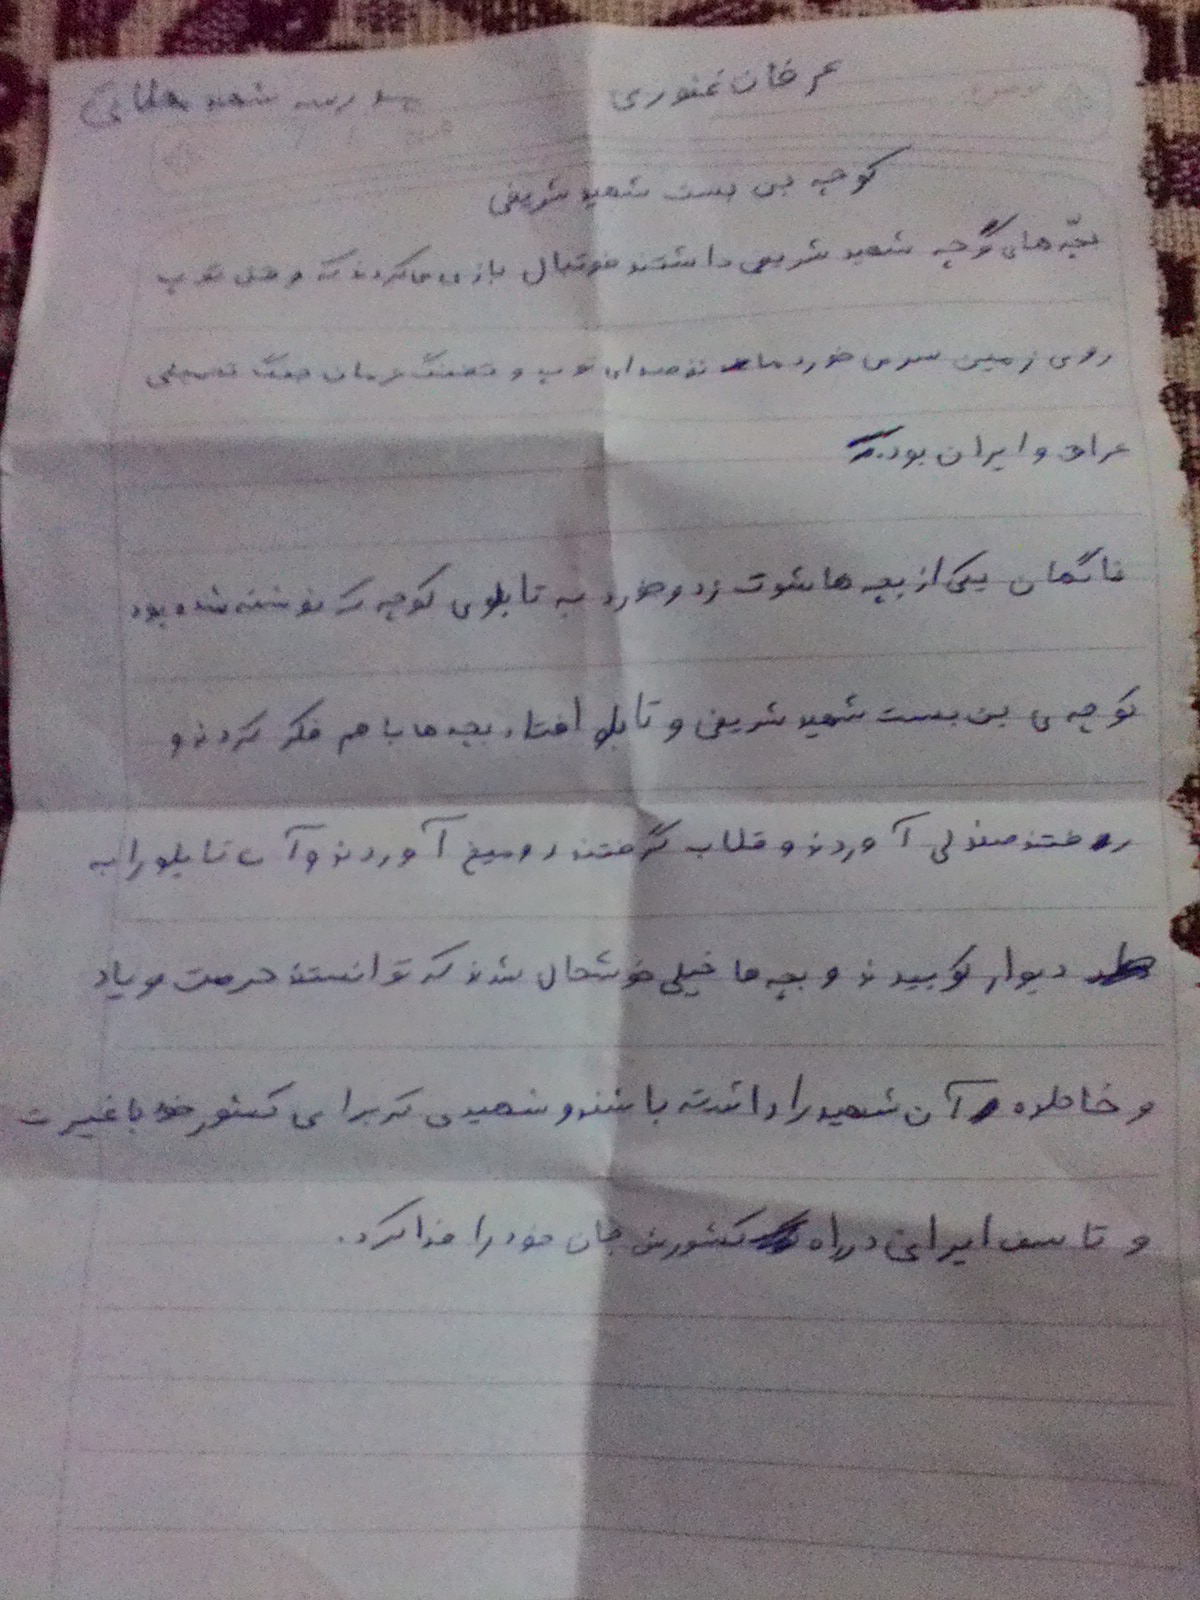 عرفان غفوری مدرسه شهید
کوچه بن بست شهید شریفی
بچّه های کوچه شهید شریفی داشتند فوتبال بازی می کردند که وقتی توپ
روی زمین سر می خورد مانند صدای توپ و تفنگ زمان جنگ تحمیلی
عراق و ایران بود.
ناگهان یکی از بچه ها شوت زد و خورد به تابلوی کوچه که نوشته شده بود
کوچه ی بن بست شهید شریفی و تابلو افتاد بچه ها با هم فکر کردند و
رفتند صندلی آوردند و قلاب گرفتند و میخ آوردند و آن تابلو را به
دیوار کوبیدند و بچه ها خیلی خوشحال شدند که توانستند حرمت و یاد
و خاطره آن شهید را داشته باشند و شهیدی که برای کشور خود با غیرت
و تا سف ایرانی در راه کشورش جان خود را فدا کرد.